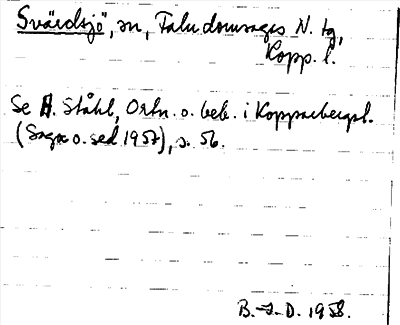 Svärdsjö, sn, Falu domsagas N. tg,
Kopp. l.
Se H. Ståhl, Ortn. o. beb. i Kopparbergsl.
(Saga o. sed 1957), s. 56.
B.-J.-D. 1958.